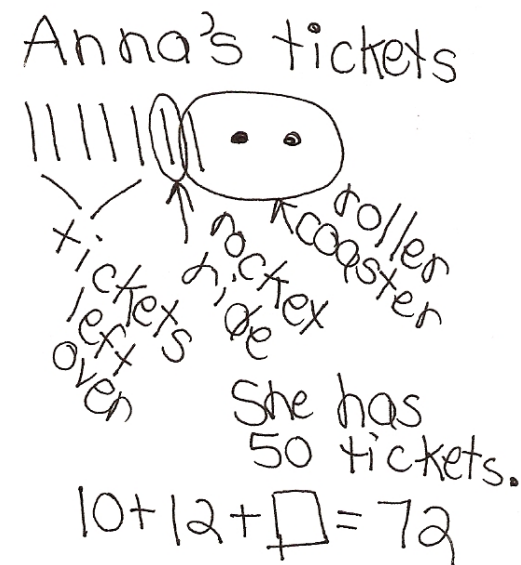 Anna's tickets
tickets
left
over
rocket
ride
roller
coaster
She has
50 tickets.
10+12+□=72